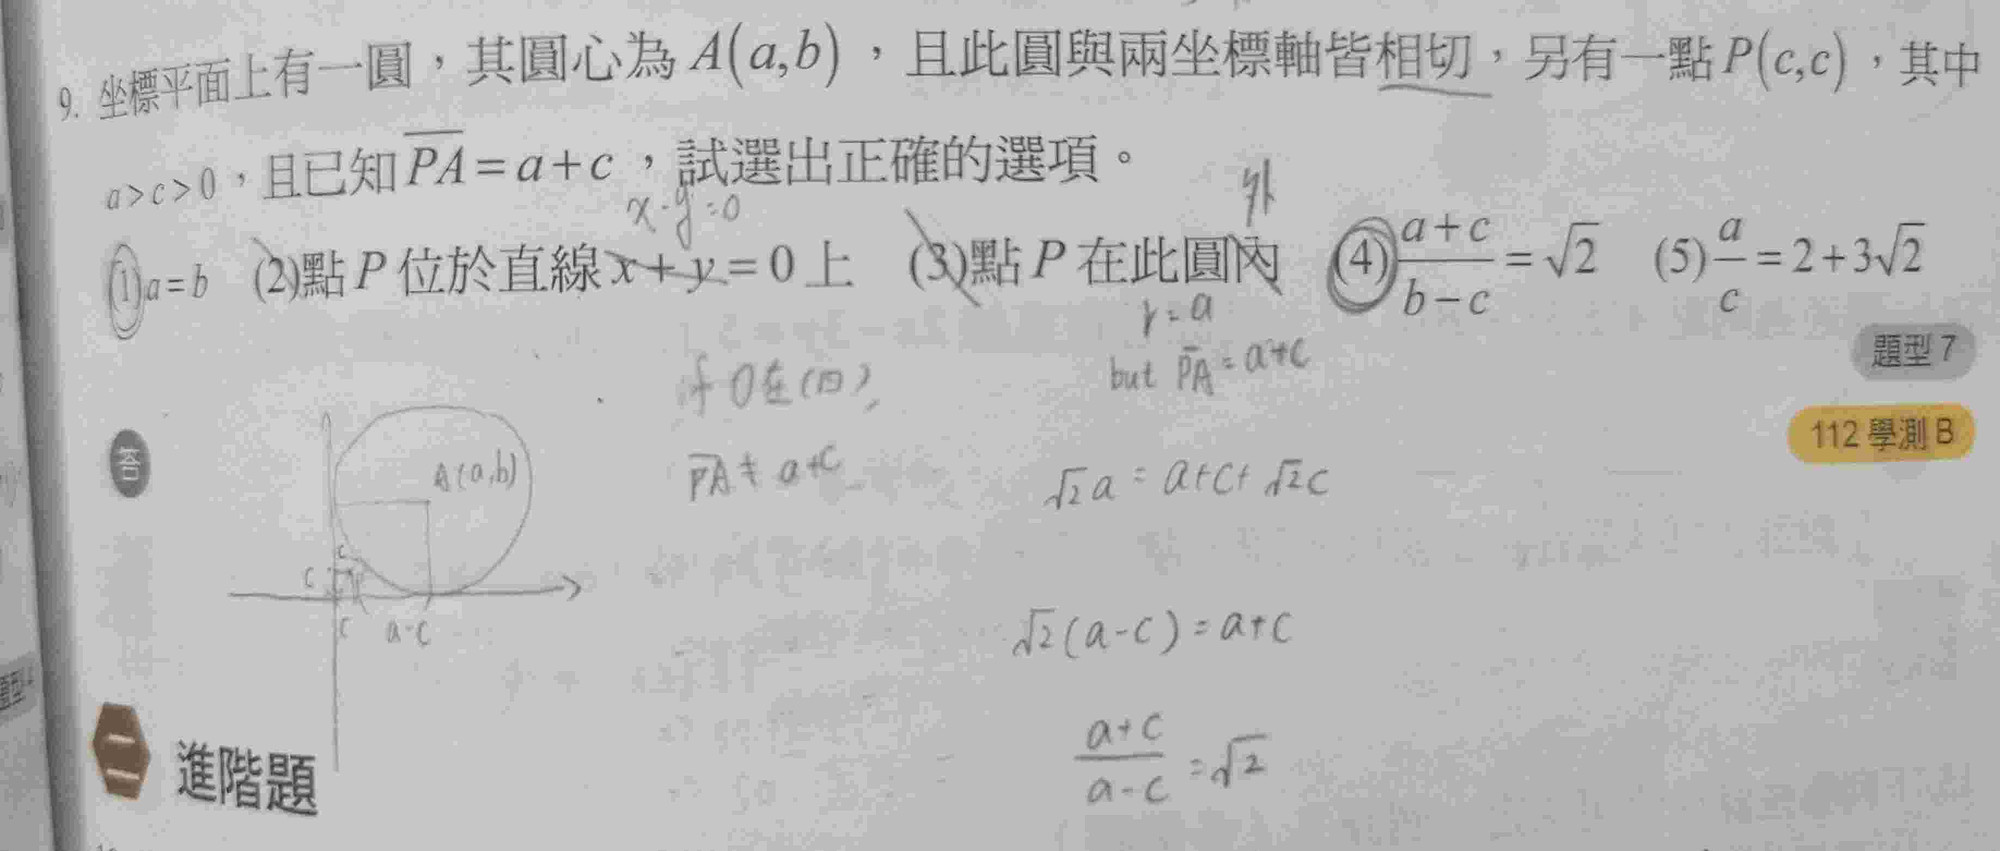 9. 坐標平面上有一圓，其圓心為 A(a,b)，且此圓與兩坐標軸皆相切，另有一點 P(c,c)，其中
a>c>0，且已知 \overline{PA}=a+c，試選出正確的選項。
x-y=0
外
(1)a=b (2)點 P 位於直線 x+y=0 上 (3)點 P 在此圓內 (4)\frac{a+c}{b-c}=√2 (5)\frac{a}{c}=2+3√2
r=a
but \overline{PA}=a+c
題型 7
112 學測 B
答
if O在(四),
\overline{PA}≠a+c
A(a,b)
c
c
c a-c
√2a=a+c+√2c
√2(a-c)=a+c
\frac{a+c}{a-c}=√2
二 進階題